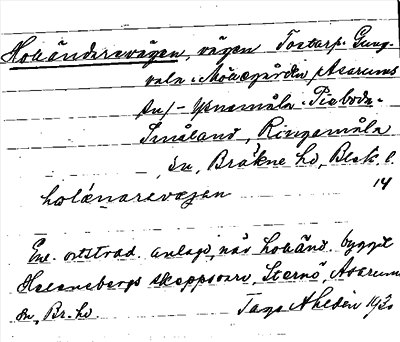 Holländarevägen, vägen Tostarp-Gung-
vala-Möllegården /Asarums
sn/-Ysnamåla-Piaboda-
Småland, Ringamåla
sn, Bräkne hd, Blek. l.
holénarevægen 14
Enl. ortstrad. anlagd, när holländ. byggde
Hellenebergs skeppsvarv, Sternö, Asarums
sn, Br. hd. Tage Ahldén 1930